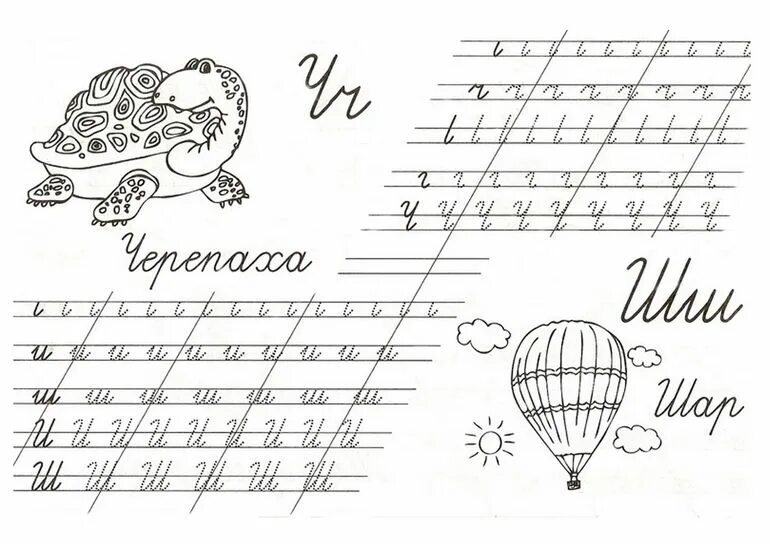 Чч
ч ч ч ч ч ч ч ч
Ч Ч Ч Ч Ч Ч Ч Ч Ч
Черепаха
и и и и и и и и и и
ш ш ш ш ш ш ш
И И И И И И И И
Ш Ш Ш Ш Ш Ш
Шш
Шар